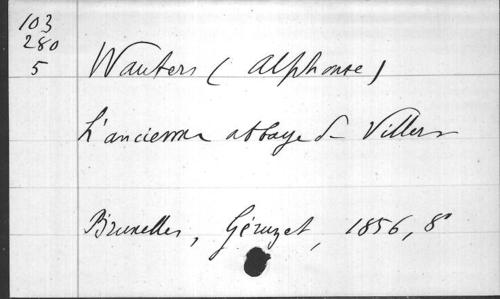 103
280
5
Wauters (Alphonse)
L'ancienne abbaye de Villers
Bruxelles, Géruzet, 1856, 8°